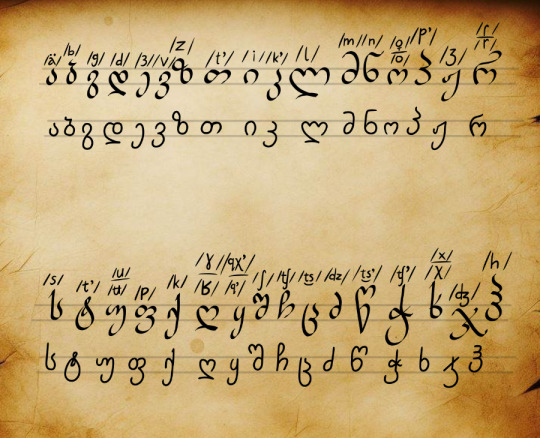 /ä/ /b/ /g/ /d/ /ɜ/ /v/ /z/ /t'/ /i/ /k'/ /l/ /m/ /n/ /o̞/ /o/ /p'/ /ʒ/ /ɾ/ /r/
ა ბ გ დ ე ვ ზ თ ი კ ლ მ ნ ო პ ჟ რ
ა ბ გ დ ე ვ ზ თ ი კ ლ მ ნ ო პ ჟ რ
/s/ /t'/ /u/ /p/ /k/ /ɣ/ /ʁ/ /qχ'/ /q'/ /ʃ/ /tʃ/ /ts/ /dz/ /ts'/ /tʃ'/ /x/ /χ/ /dʒ/ /h/
ს ტ უ ფ ქ ღ ყ შ ჩ ც ძ წ ჭ ხ ჯ ჰ
ს ტ უ ფ ქ ღ ყ შ ჩ ც ძ წ ჭ ხ ჯ ჰ